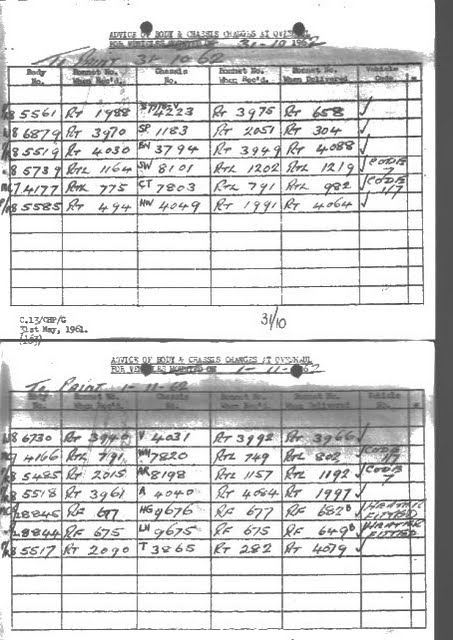 ADVICE OF BODY & CHASSIS CHANGES AT OVERHAUL
FOR VEHICLES MOUNTED ON 31-10 1962
To Paint 31-10-62
Body No. Bonnet No. When Rec'd. Chassis No. Bonnet No. When Rec'd. Bonnet No. When Delivered Vehicle Code
8 5561 RT 1988 4223 RT 3975 RT 658 ✓
8 6879 RT 3970 SP 1183 RT 2051 RT 304 ✓
8 5519 RT 4030 3794 RT 3949 RT 4088 ✓
8 5739 RTL 1164 SW 8101 RTL 1202 RTL 1219 ✓ CODE 7
7 4177 RTL 775 CT 7803 RTL 791 RTL 982 ✓ CODE
8 5585 RT 494 HW 4049 RT 1991 RT 4064 ✓
C.13/CHP/G
31st May, 1961.
(183)
31/10
ADVICE OF BODY & CHASSIS CHANGES AT OVERHAUL
FOR VEHICLES MOUNTED ON 1-11-1962
To Paint 1-11-62
Body No. Bonnet No. When Rec'd. Chassis No. Bonnet No. When Rec'd. Bonnet No. When Delivered Vehicle No.
8 6730 RT 3940 V 4031 RT 3992 RT 3966 ✓
7 4166 RTL 791 7820 RTL 749 RTL 802 ✓ CODE
8 5485 RT 2015 AR 8198 RTL 1157 RTL 1192 ✓ CODE 7
8 5518 RT 3961 A 4040 RT 4084 RT 1997 ✓
8845 RF 677 HG 9676 RF 677 RF 682 B ✓ HEATER FITTED
8844 RF 675 LN 9675 RF 675 RF 649 B ✓ HEATER FITTED
8 5517 RT 2090 T 3865 RT 282 RT 4079 ✓